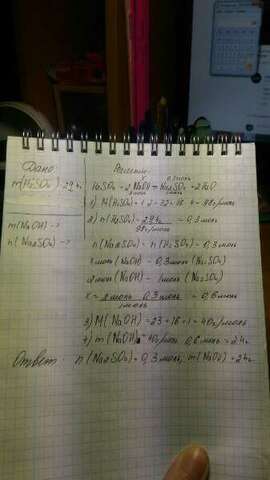 Дано:
m(H₂SO₄) = 29,4г.
m(NaOH) - ?
n(Na₂SO₄) - ?
Решение:
x 0,3моль
H₂SO₄ + 2NaOH = Na₂SO₄ + 2H₂O
2моль 1моль
1) M(H₂SO₄) = 1·2+32+16·4 = 98г/моль
2) n(H₂SO₄) = 29,4г / 98г/моль = 0,3моль
n(Na₂SO₄) = n(H₂SO₄) = 0,3моль
xмоль (NaOH) - 0,3моль (Na₂SO₄)
2моль (NaOH) - 1моль (Na₂SO₄)
x = 2моль · 0,3моль / 1моль = 0,6моль
3) M(NaOH) = 23+16+1 = 40г/моль
4) m(NaOH) = 40г/моль · 0,6моль = 24г.
Ответ: n(Na₂SO₄) = 0,3моль; m(NaOH) = 24г.